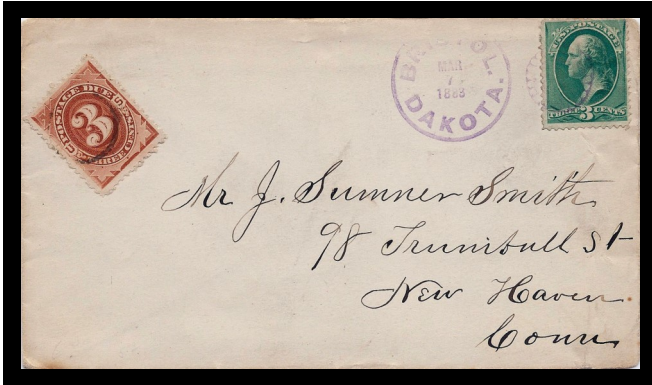 POSTAGE DUE
3
THREE CENTS
BRISTOL.
MAR
7
1883
DAKOTA.
U.S. POSTAGE
THREE 3 CENTS
Mr J. Sumner Smith
98 Trumbull St
New Haven
Conn